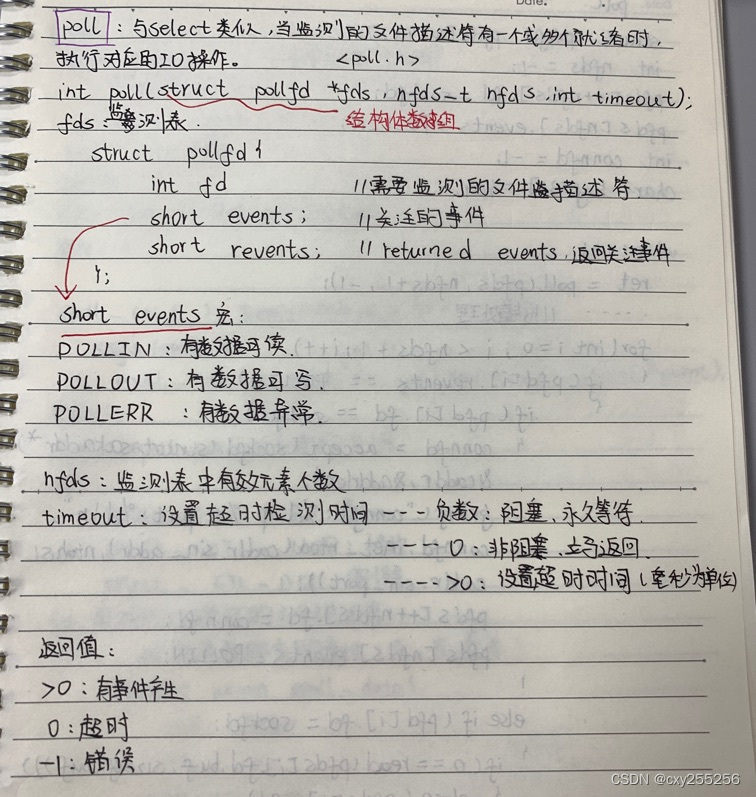 Date.
poll : 与select类似,当监测的文件描述符有一个或多个就绪时,
执行对应的IO操作。 <poll.h>
int poll(struct pollfd *fds, nfds_t nfds, int timeout);
fds: 监测表. 结构体数组
struct pollfd {
int fd //需要监测的文件描述符
short events; //关注的事件
short revents; //returned events.返回关注事件
};
short events 宏:
POLLIN : 有数据可读.
POLLOUT : 有数据可写.
POLLERR : 有数据异常.
nfds : 监测表中有效元素个数
timeout : 设置超时检测时间 --- 负数: 阻塞,永久等待.
--- 0: 非阻塞,立马返回.
---- >0: 设置超时时间(毫秒为单位)
返回值:
>0 : 有事件产生
0 : 超时
-1 : 错误
CSDN @cxy255256